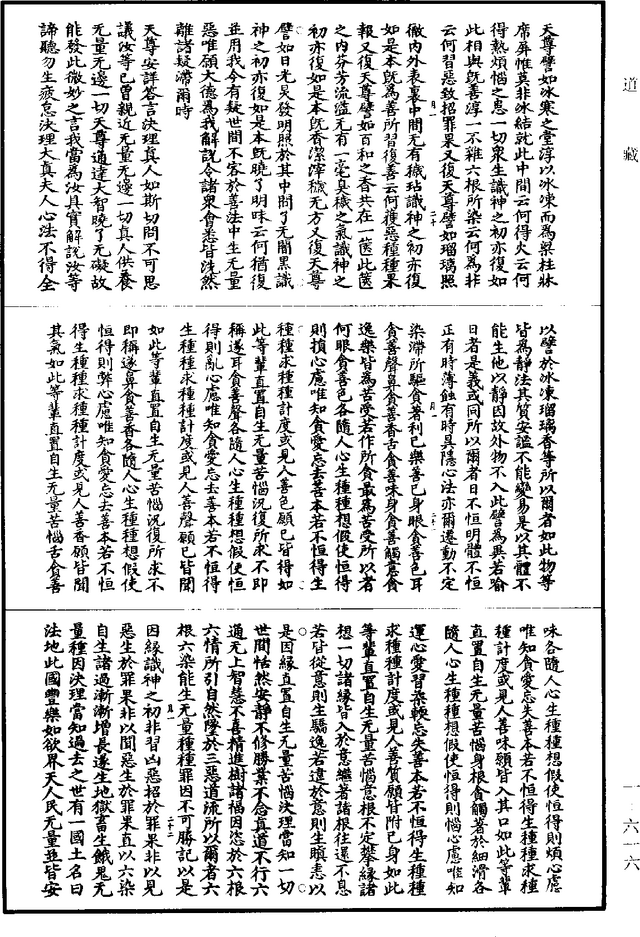 天尊譬如冰寒之堂淳以冰凍而為梁柱牀
席屏帷莫非冰結就此中間云何得火云何
得熱煩惱之患一切眾生識神之初亦復如
此相與既善淳一不雜六根所染云何為非
云何習惡致招罪累又復天尊譬如瑠璃照
徹內外表裏中間无有穢玷識神之初亦復
如是本既為善所習復善云何獲惡種種果
報又復天尊譬如百和之香共在一篋此篋
之內芬芳流溢无有一毫臭穢之氣識神之
初亦復如是本既香潔滓穢无方又復天尊
譬如日光昊發明照於其中問了无闇黑識
神之初亦復如是本既曉了明味云何猶復
並用我今有疑世間不容於善法中生无量
惡唯願大德為我解說令諸衆會悉皆洗然
離諸疑滯爾時
天尊安詳答言決理真人如斯切問不可思
議汝等已曾親近无量无邊一切真人供養
无量无邊一切天尊通達大智曉了无礙故
能發此微妙之言我當為汝具實解說汝等
諦聽勿生疲怠決理大真夫人心法不得全
以譬於冰凍瑠璃香等所以爾者如此物等
皆為靜法其質安謐不能變易是以其體不
能生他以靜因故外物不入此譬為異若喻
日者是義或同所以爾者日不恒明體不恒
正有時薄蝕有時具隱心法亦爾遷動不定
染滯所驅貪著利已樂善已身眼貪善色耳
貪善聲鼻貪善香舌貪善味身貪善觸意貪
逸樂皆為苦受若作所貪最為苦受所以者
何眼貪善色各隨人心生種種想假使恒得
則損心慮唯知貪愛忘去善本若不恒得生
種種求種種計度或見人善色願已皆得如
此等輩直置自生无量苦惱況復所求不即
稱遂耳貪善聲各隨人心生種種想假使恒
得則亂心慮唯知貪愛忘去善本若不恒得
生種種求種種計度或見人善聲願已皆聞
如此等輩直置自生无量苦惱況復所求不
即稱遂鼻貪善香各隨人心生種種想假使
恒得則弊心慮唯知貪愛忘去善本若不恒
得生種種求種種計度或見人善香願皆聞
其氣如此等輩直置自生无量苦惱舌貪善
味各隨人心生種種想假使恒得則煩心慮
唯知貪愛忘失善本若不恒得生種種求種
種計度或見人善味願皆入其口如此等輩
直置自生无量苦惱身根貪觸著於細滑各
隨人心生種種想假使恒得則惱心慮唯知
運心愛習染輭忘失善本若不恒得生種種
求種種計度或見人善質願皆附已身如此
等輩直置自生无量苦惱意根不定攀緣諸
想一切諸緣皆入於意繼著諸根往還不息
若皆從意則生驕逸若違於意則生瞋恚以
是因緣直置自生无量苦惱決理當知一切
世間怙然安靜不修勝業不念真道不行六
通无上智慧不喜精進樹諸福因恣於六根
六情所引自然墮於三惡道流所以爾者六
根六染能生无量種種罪因不可勝記以是
因緣識神之初非習凶惡招於罪果非以見
惡生於罪果非以聞惡生於罪果直以六染
自生諸過漸漸增長遂生地獄畜生餓鬼无
量種因決理當知過去之世有一國土名曰
法地此國豐樂如欲界天人民无量並皆安
道藏
一-六一六